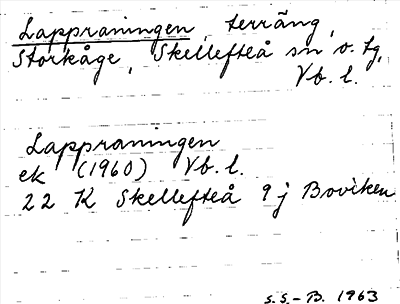 Lappraningen, terräng,
Storkåge, Skellefteå sn o. tg,
Vb. l.
Lappraningen
ek (1960) Vb. l.
22 K Skellefteå 9 j Boviken
S.S. - B. 1963